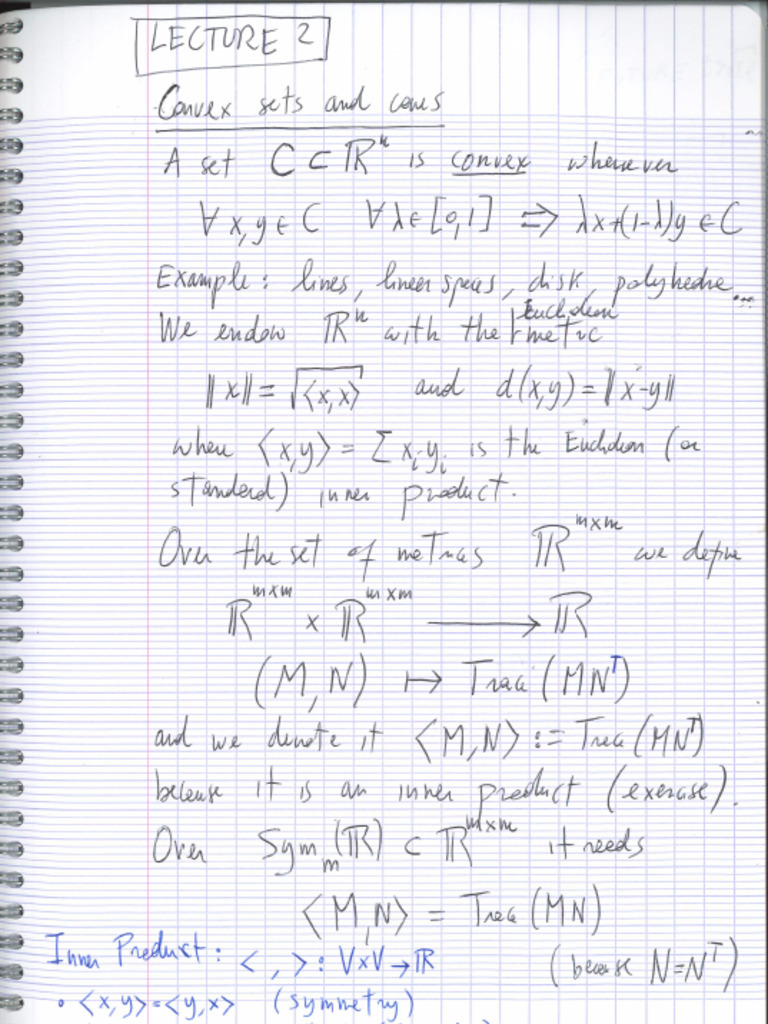 LECTURE 2
Convex sets and cones
A set C ⊂ ℝⁿ is convex whenever
∀ x,y ∈ C ∀ λ ∈ [0,1] ⇒ λx+(1-λ)y ∈ C
Example: lines, linear spaces, disk, polyhedra...
We endow ℝⁿ with the Euclidean metric
‖x‖ = √⟨x,x⟩ and d(x,y) = ‖x-y‖
where ⟨x,y⟩ = Σ xᵢyᵢ is the Euclidean (or
standard) inner product.
Over the set of matrices ℝ^{m×m} we define
ℝ^{m×m} × ℝ^{m×m} ⟶ ℝ
(M,N) ↦ Trace(MNᵀ)
and we denote it ⟨M,N⟩ := Trace(MNᵀ)
because it is an inner product (exercise).
Over Symₘ(ℝ) ⊂ ℝ^{m×m} it reads
⟨M,N⟩ = Trace(MN)
(because N=Nᵀ)
Inner Product: < , > : V×V → ℝ
• <x,y>=<y,x> (symmetry)